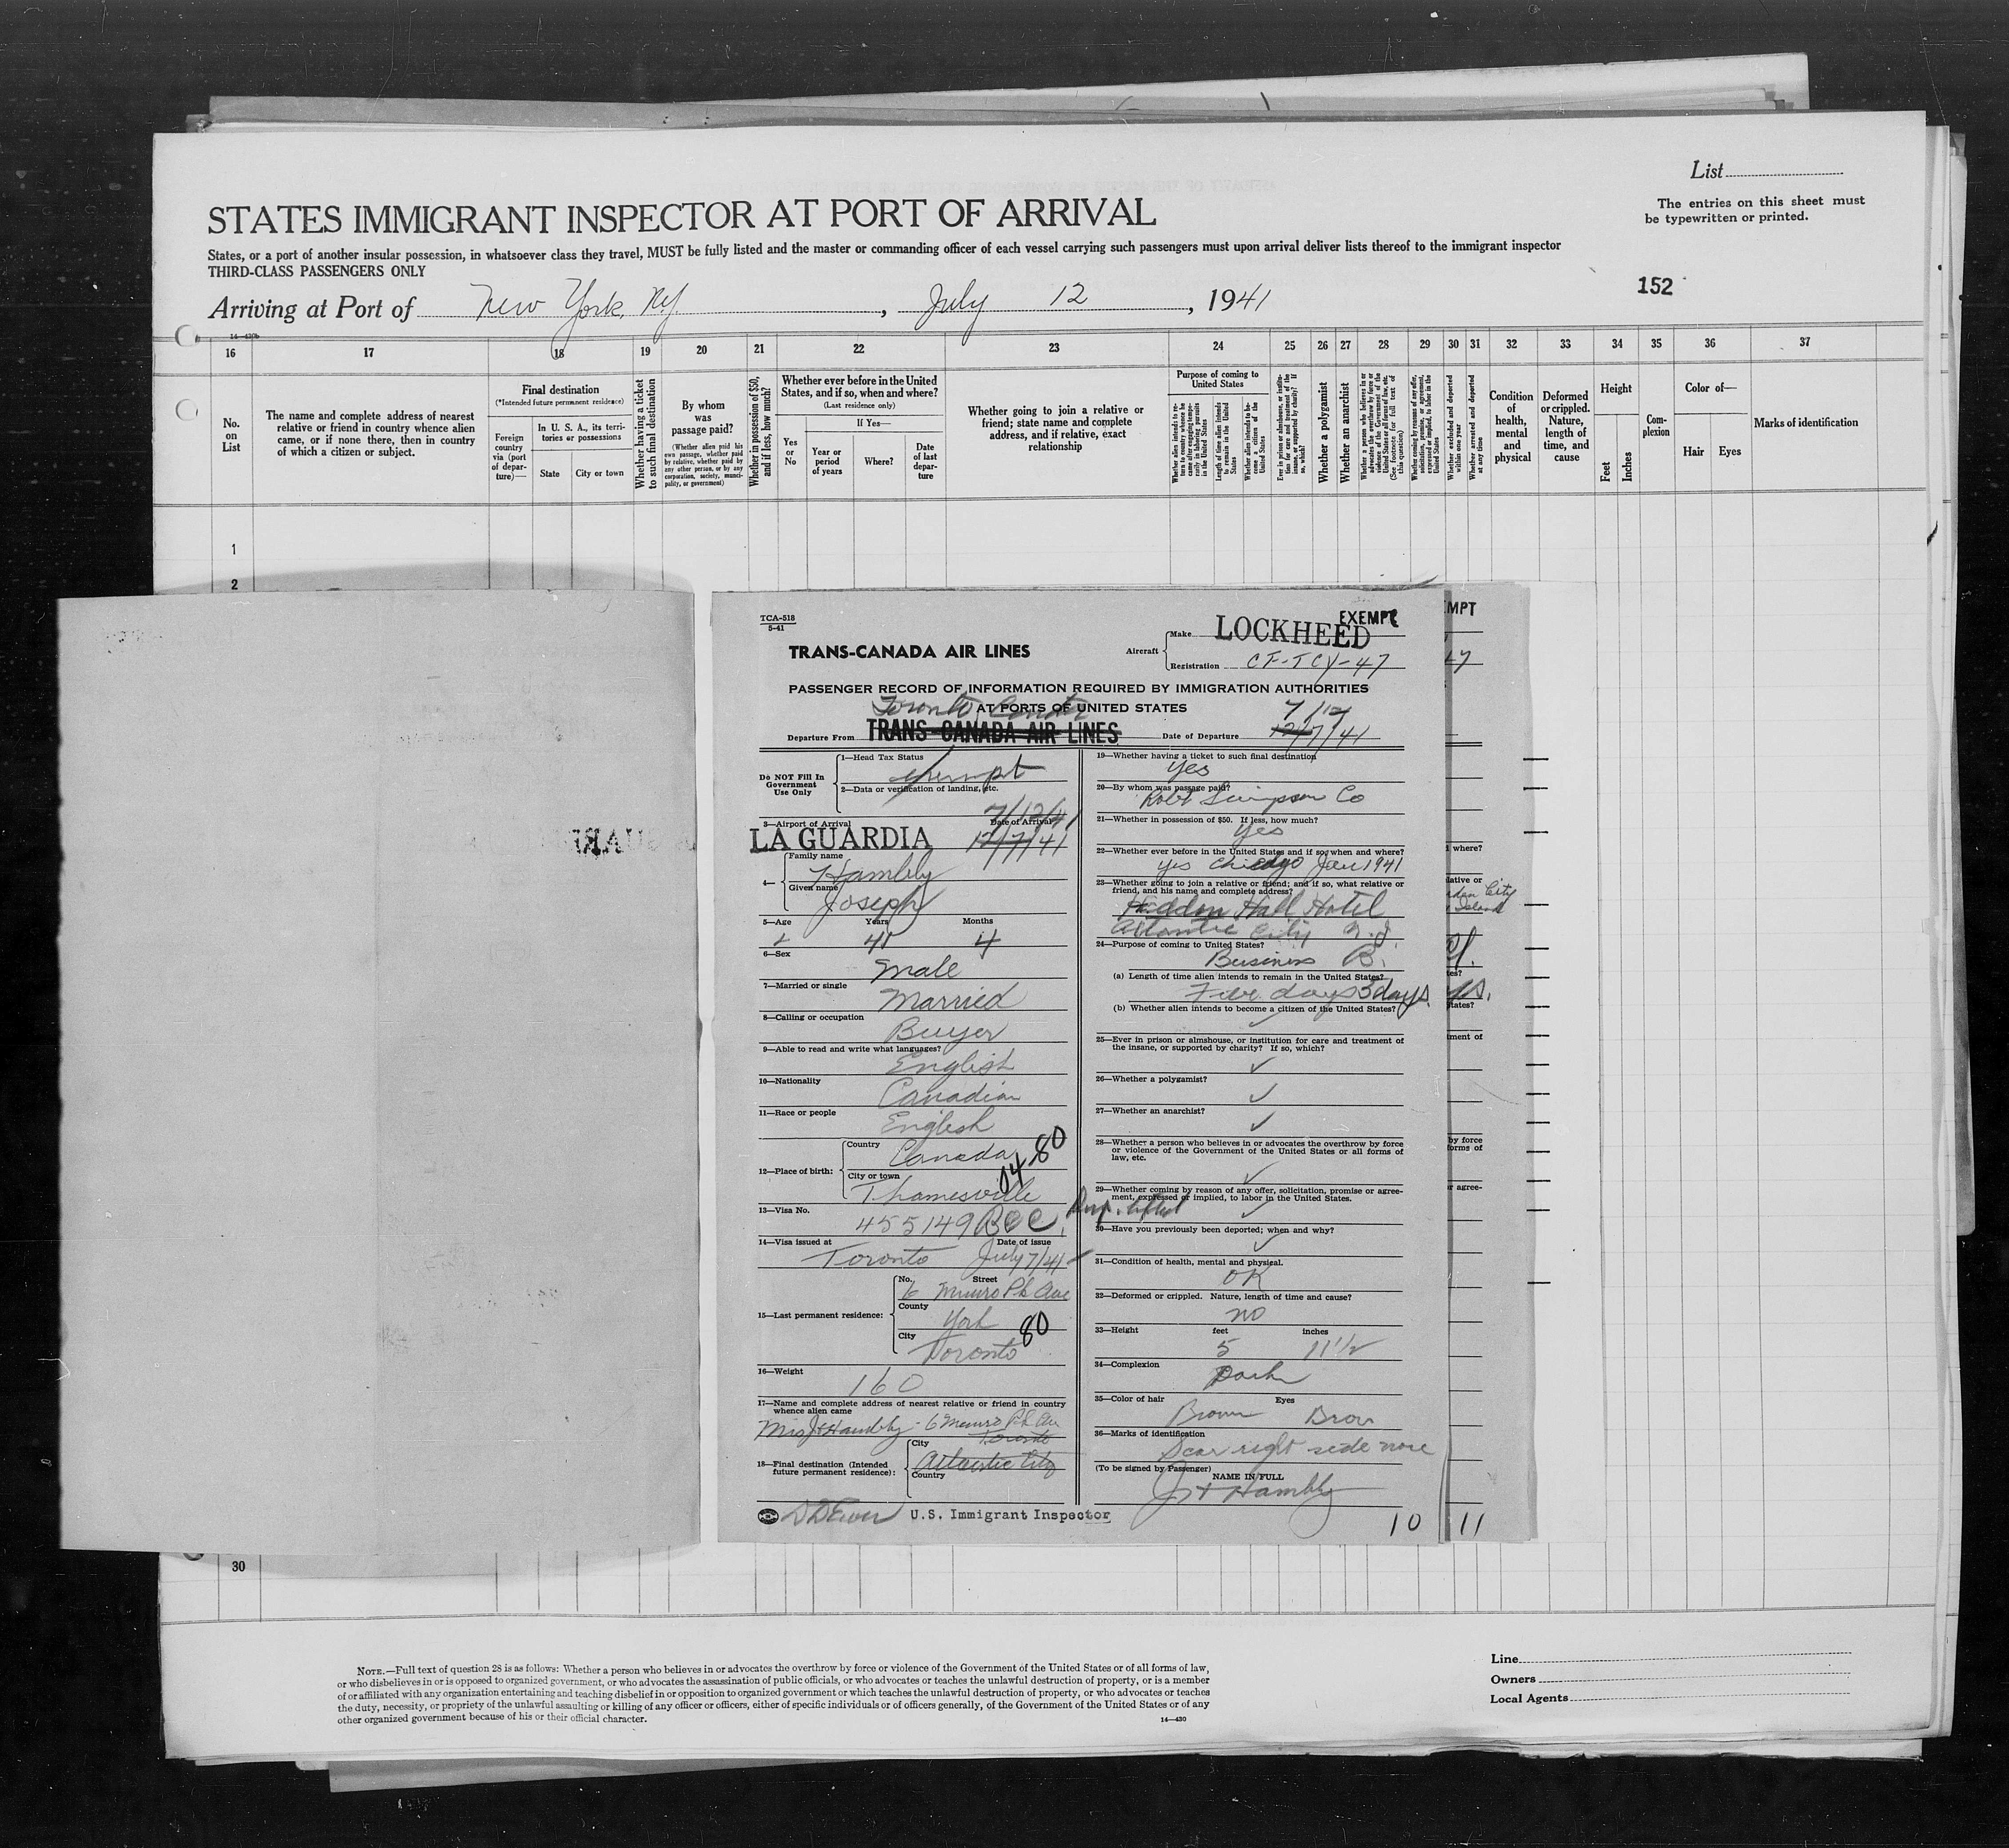 List
The entries on this sheet must
be typewritten or printed.
STATES IMMIGRANT INSPECTOR AT PORT OF ARRIVAL
States, or a port of another insular possession, in whatsoever class they travel, MUST be fully listed and the master or commanding officer of each vessel carrying such passengers must upon arrival deliver lists thereof to the immigrant inspector
THIRD-CLASS PASSENGERS ONLY
152
Arriving at Port of New York, N.Y., July 12, 1941
14—430b
16 17 18 19 20 21 22 23 24 25 26 27 28 29 30 31 32 33 34 35 36 37
No.
on
List
The name and complete address of nearest
relative or friend in country whence alien
came, or if none there, then in country
of which a citizen or subject.
Final destination
(*Intended future permanent residence)
Foreign
country
via (port
of depar-
ture)—
In U. S. A., its terri-
tories or possessions
State
City or town
Whether having a ticket
to such final destination
By whom
was
passage paid?
(Whether alien paid his
own passage, whether paid
by relative, whether paid by
any other person, or by any
corporation, society, munici-
pality, or government)
Whether in possession of $50,
and if less, how much?
Whether ever before in the United
States, and if so, when and where?
(Last residence only)
Yes
or
No
If Yes—
Year or
period
of years
Where?
Date
of last
depar-
ture
Whether going to join a relative or
friend; state name and complete
address, and if relative, exact
relationship
Purpose of coming to
United States
Whether alien intends to re-
turn to country whence he
came after engaging tempo-
rarily in laboring pursuits
in the United States
Length of time alien intends
to remain in the United
States
Whether alien intends to be-
come a citizen of the
United States
Ever in prison or almshouse, or institu-
tion for care and treatment of the
insane, or supported by charity? If
so, which?
Whether a polygamist
Whether an anarchist
Whether a person who believes in or
advocates the overthrow by force or
violence of the Government of the
United States or all forms of law, etc.
(See footnote for full text of
this question)
Whether coming by reason of any offer,
solicitation, promise, or agreement,
expressed or implied, to labor in the
United States
Whether excluded and deported
within one year
Whether arrested and deported
at any time
Condition
of
health,
mental
and
physical
Deformed
or crippled.
Nature,
length of
time, and
cause
Height
Feet
Inches
Com-
plexion
Color of—
Hair
Eyes
Marks of identification
1
2
TCA-518
5-41
TRANS-CANADA AIR LINES
EXEMPT
Aircraft
Make LOCKHEED
Registration CF-TCY-47
PASSENGER RECORD OF INFORMATION REQUIRED BY IMMIGRATION AUTHORITIES
AT PORTS OF UNITED STATES
Toronto, Canada
7/12
Departure From TRANS-CANADA AIR LINES
Date of Departure 12/7/41
Do NOT Fill In
Government
Use Only
1—Head Tax Status
exempt
2—Data or verification of landing, etc.
3—Airport of Arrival
Date of Arrival
7/12/41
LA GUARDIA 12/7/41
4—
Family name
Hambly
Given name
Joseph
5—Age
Years
Months
41 4
6—Sex
Male
7—Married or single
Married
8—Calling or occupation
Buyer
9—Able to read and write what languages?
English
10—Nationality
Canadian
11—Race or people
English
12—Place of birth:
Country
Canada
04-80
City or town
Thamesville
13—Visa No.
455149 BCC.
14—Visa issued at
Date of issue
Toronto July 7/41
15—Last permanent residence:
No.
Street
6 Munro Pk Ave
County
York
80
City
Toronto
16—Weight
160
17—Name and complete address of nearest relative or friend in country
whence alien came
Mrs J Hambly - 6 Munro Pk Av
Toronto
18—Final destination (Intended
future permanent residence):
City
Atlantic City
Country
U.S. Immigrant Inspector
19—Whether having a ticket to such final destination
Yes
20—By whom was passage paid?
Robt Simpson Co
21—Whether in possession of $50. If less, how much?
Yes
22—Whether ever before in the United States and if so, when and where?
yes Chicago Jan 1941
23—Whether going to join a relative or friend; and if so, what relative or
friend, and his name and complete address?
Haddon Hall Hotel
Atlantic City N.J.
24—Purpose of coming to United States?
Business B.
(a) Length of time alien intends to remain in the United States?
Five days 3 days.
(b) Whether alien intends to become a citizen of the United States?
25—Ever in prison or almshouse, or institution for care and treatment of
the insane, or supported by charity? If so, which?
26—Whether a polygamist?
27—Whether an anarchist?
28—Whether a person who believes in or advocates the overthrow by force
or violence of the Government of the United States or all forms of
law, etc.
29—Whether coming by reason of any offer, solicitation, promise or agree-
ment, expressed or implied, to labor in the United States.
30—Have you previously been deported; when and why?
31—Condition of health, mental and physical.
OK
32—Deformed or crippled. Nature, length of time and cause?
no
33—Height
feet
inches
5 11 1/2
34—Complexion
Dark
35—Color of hair
Eyes
Brown Brow
36—Marks of identification
Scar right side nose
(To be signed by Passenger)
NAME IN FULL
J H Hambly
10
11
30
NOTE.—Full text of question 28 is as follows: Whether a person who believes in or advocates the overthrow by force or violence of the Government of the United States or of all forms of law,
or who disbelieves in or is opposed to organized government, or who advocates the assassination of public officials, or who advocates or teaches the unlawful destruction of property, or is a member
of or affiliated with any organization entertaining and teaching disbelief in or opposition to organized government or which teaches the unlawful destruction of property, or who advocates or teaches
the duty, necessity, or propriety of the unlawful assaulting or killing of any officer or officers, either of specific individuals or of officers generally, of the Government of the United States or of any
other organized government because of his or their official character.
14—430
Line
Owners
Local Agents